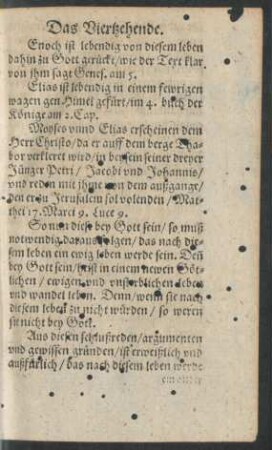 Das Viertzehende.
Enoch ist lebendig von diesem leben
dahin zu Gott gerückt/wie der Text klar
von ihm sagt Genes. am 5.
Elias ist lebendig in einem fewrigen
wagen gen Himel gefürt/im 4. buch der
Könige am 2. Cap.
Moyses vnnd Elias erscheinen dem
Herr Christo/da er auff dem berge Tha-
bor verkleret wird/in beysein seiner dreyer
Jünger Petri/ Jacobi vnd Johannis/
vnd reden mit ihme von dem außgange/
den er zu Jerusalem sol volenden/ Mat-
thei 17. Marci 9. Luce 9.
So nun diese bey Gott sein/ so muß
notwendig daraus folgen/ das nach die-
sem leben ein ewig leben werde sein. Deñ
bey Gott sein/heist in einem newen Göt-
lichen/ ewigen vnd vnsterblichen leben
vnd wandel leben. Denn/wenn sie nach
diesem leben zu nicht würden/ so weren
sie nicht bey Gott.
Aus diesen schlußreden/argumenten
vnd gewissen gründen/ist erweißlich vnd
außfürlich/ das nach diesem leben werde
ein ander